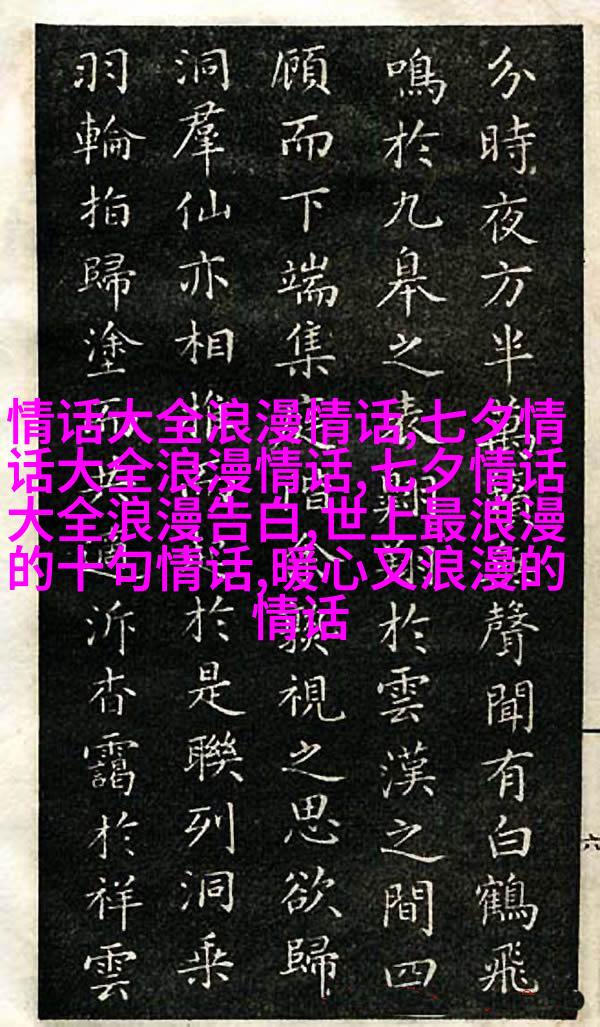 分時夜方半萬聲聞有白鶴飛
鳴於九皋之表翔於雲漢之間四
顧而下端集視之思欲歸
洞羣仙亦相於是聯列洞乘
羽輪指歸塗泝杳靄於祥雲
情话大全浪漫情话,七夕情
话大全浪漫情话,七夕情话
大全浪漫告白,世上最浪漫
的十句情话,暖心又浪漫的
情话
六